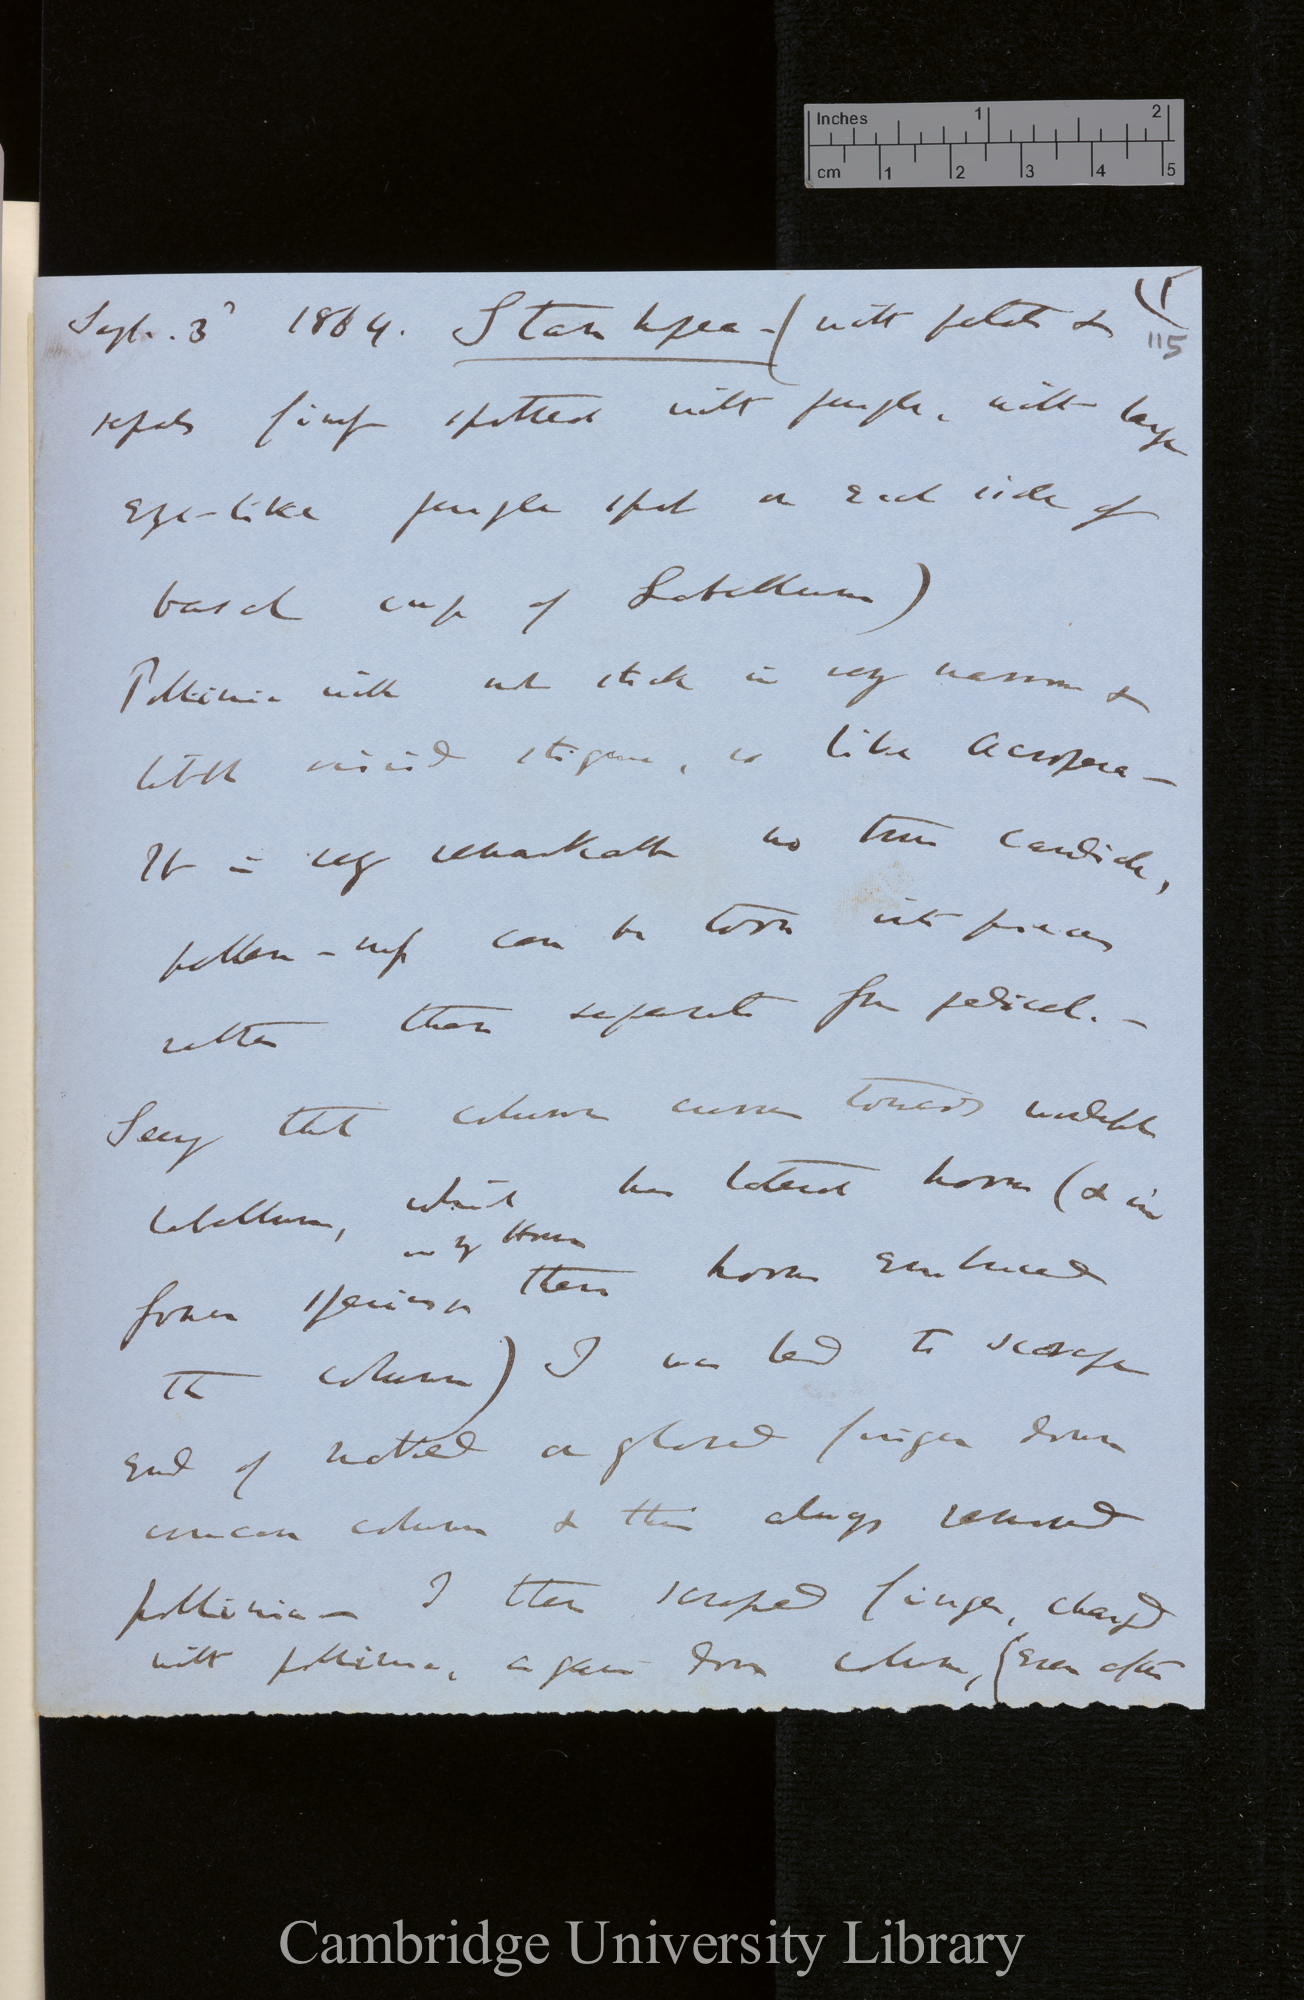 Inches 1 2
cm 1 2 3 4 5
(1
115
Sept. 3d 1864. Stanhopea - (with petals &
sepals finely spotted with purple, with large
eye-like purple spot on each side of
basal cup of Labellum)
Pollinia will not stick in very narrow &
little viscid stigma, is like Acropera —
It is very remarkable no true caudicle,
pollen-masses can be torn into pieces
rather than separate from pedicel. —
Seeing that column curves towards
labellum, which has lateral horns (& in
former specimen these horns embraced
the column) I was led to scrape
end of naked or gloved finger down
concave column & this always removed
pollinia — I then scraped finger, charged
with pollinia, again down column, (even after
Cambridge University Library